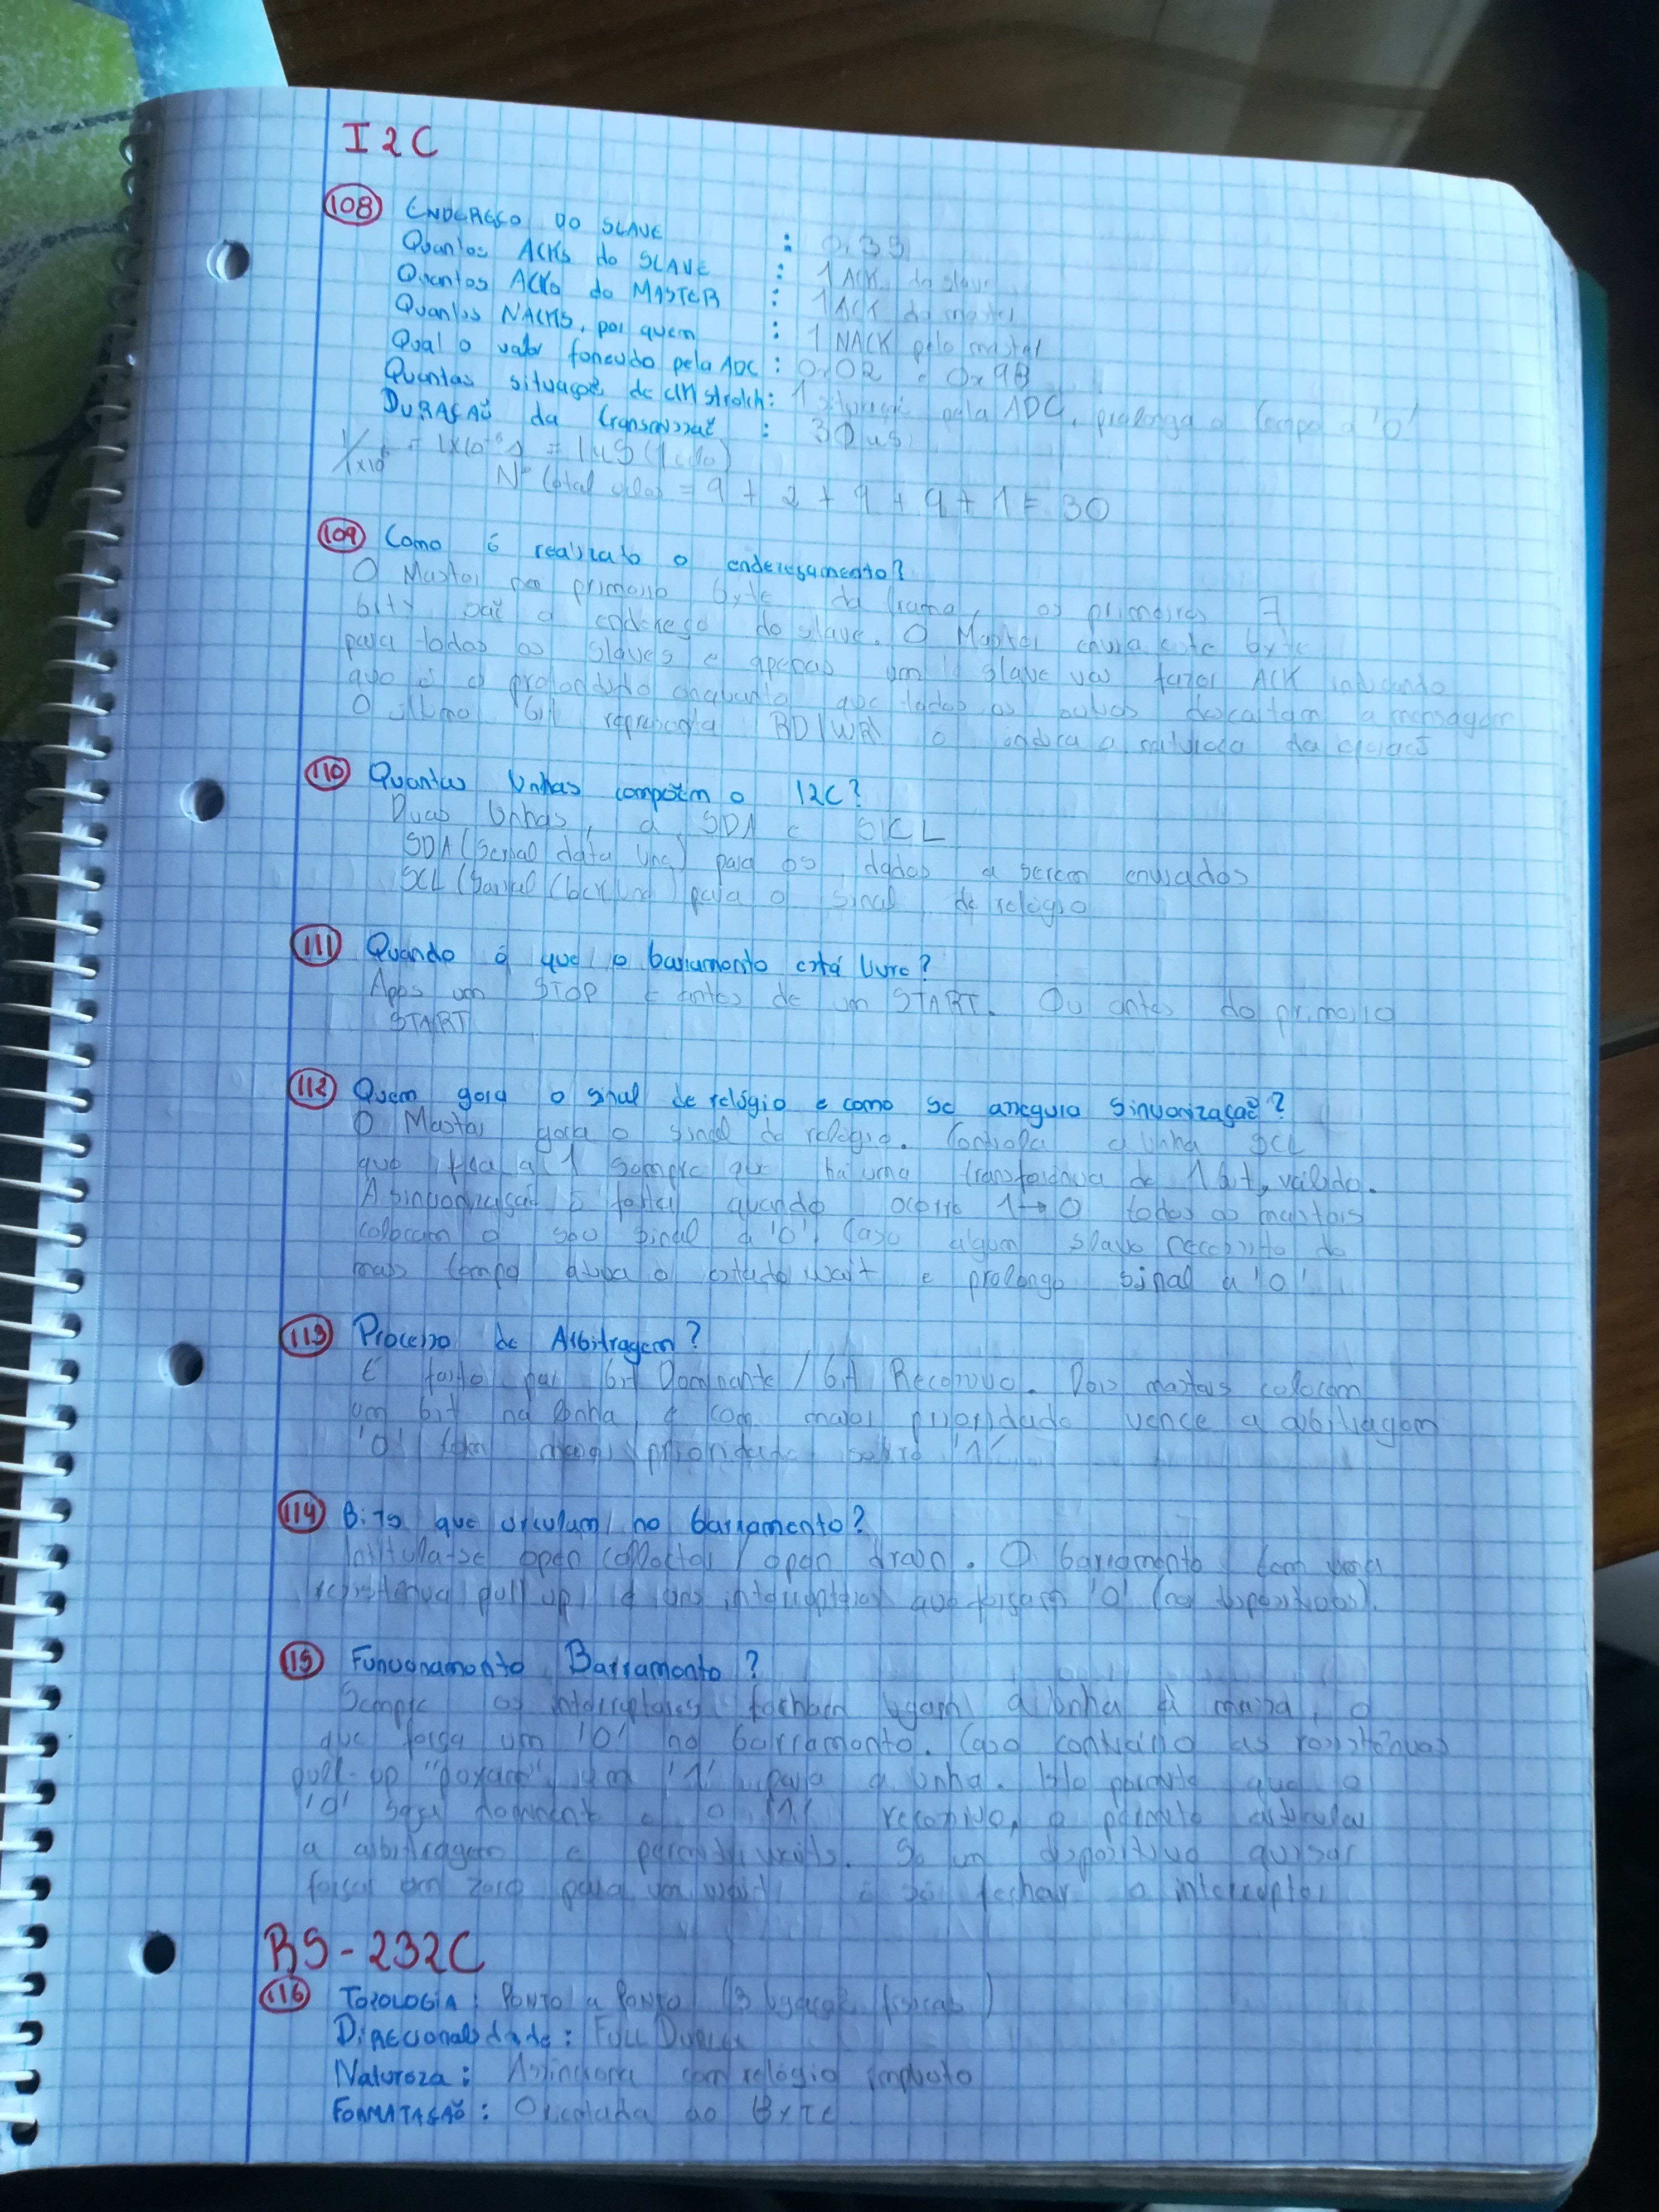 I2C
108 ENDEREÇO DO SLAVE : 0x35
Quantos ACKs do SLAVE : 1 ACK do slave
Quantos ACKs do MASTER : 1 ACK do master
Quantos NACKS, por quem : 1 NACK pelo master
Qual o valor fornecido pela ADC : 0x02 e 0x9B
Quantas situações de clk stretch : 1 situação pela ADC, prolonga o tempo a '0'
DURAÇÃO da transmissão : 30 us
1/1x10⁶ = 1x10⁻⁶ s = 1 us (1 ciclo)
Nº total ciclos = 9 + 2 + 9 + 9 + 1 = 30
109 Como é realizado o endereçamento?
O Master no primeiro byte da trama, os primeiros 7
bits são o endereço do slave. O Master envia este byte
para todos os slaves e apenas um slave vai fazer ACK indicando
que é o pretendido enquanto que todos os outros descartam a mensagem
O último bit representa RD/WR o indica a natureza da operação
110 Quantas linhas compõem o I2C?
Duas linhas, a SDA e SCL
SDA (Serial data line) para os dados a serem enviados
SCL (Serial Clock Line) para o sinal de relógio
111 Quando é que o barramento está livre?
Após um STOP e antes de um START. Ou antes do primeiro
START
112 Quem gera o sinal de relógio e como se assegura sincronização?
O Master gera o sinal de relógio. Controla a linha SCL
que fica a 1 sempre que há uma transferência de 1 bit, válido.
A sincronização é feita quando ocorre 1→0 todos os masters
colocam o seu sinal a '0'. Caso algum slave necessite de
mais tempo ativa o estado wait e prolonga sinal a '0'
113 Processo de Arbitragem?
É feito por bit Dominante / bit Recessivo. Dois masters colocam
um bit na linha, o com maior prioridade vence a arbitragem
'0' tem maior prioridade sobre '1'
114 Bits que circulam no barramento?
Intitula-se open collector / open drain. O barramento tem uma
resistência pull up, e uns interruptores que forçam '0' (nos dispositivos).
115 Funcionamento Barramento?
Sempre os interruptores fecham ligam a linha à massa, o
que força um '0' no barramento. Caso contrário as resistências
pull-up "puxam" um '1' para a linha. Isto permite que o
'0' seja dominante e o '1' recessivo, e permite
a arbitragem e Se um dispositivo quiser
forçar um zero para um wait é só fechar o interruptor
RS-232C
116 TOPOLOGIA : PONTO a PONTO (3 ligações físicas)
Direcionalidade : FULL DUPLEX
Natureza : Assíncrona com relógio implícito
FORMATAÇÃO : Orientada ao BYTE